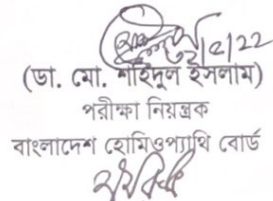 (ডা. মো. শহিদুল ইসলাম)
পরীক্ষা নিয়ন্ত্রক
বাংলাদেশ হোমিওপ্যাথি বোর্ড